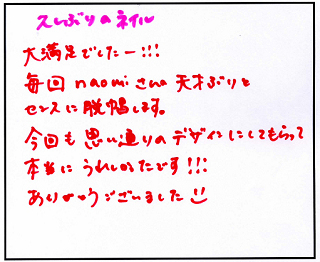 久しぶりのネイル
大満足でしたー!!!
毎回naomiさんの天才ぶりと
センスに脱帽します。
今回も思い通りのデザインにしてもらって
本当にうれしかったです!!!
ありがとうございました